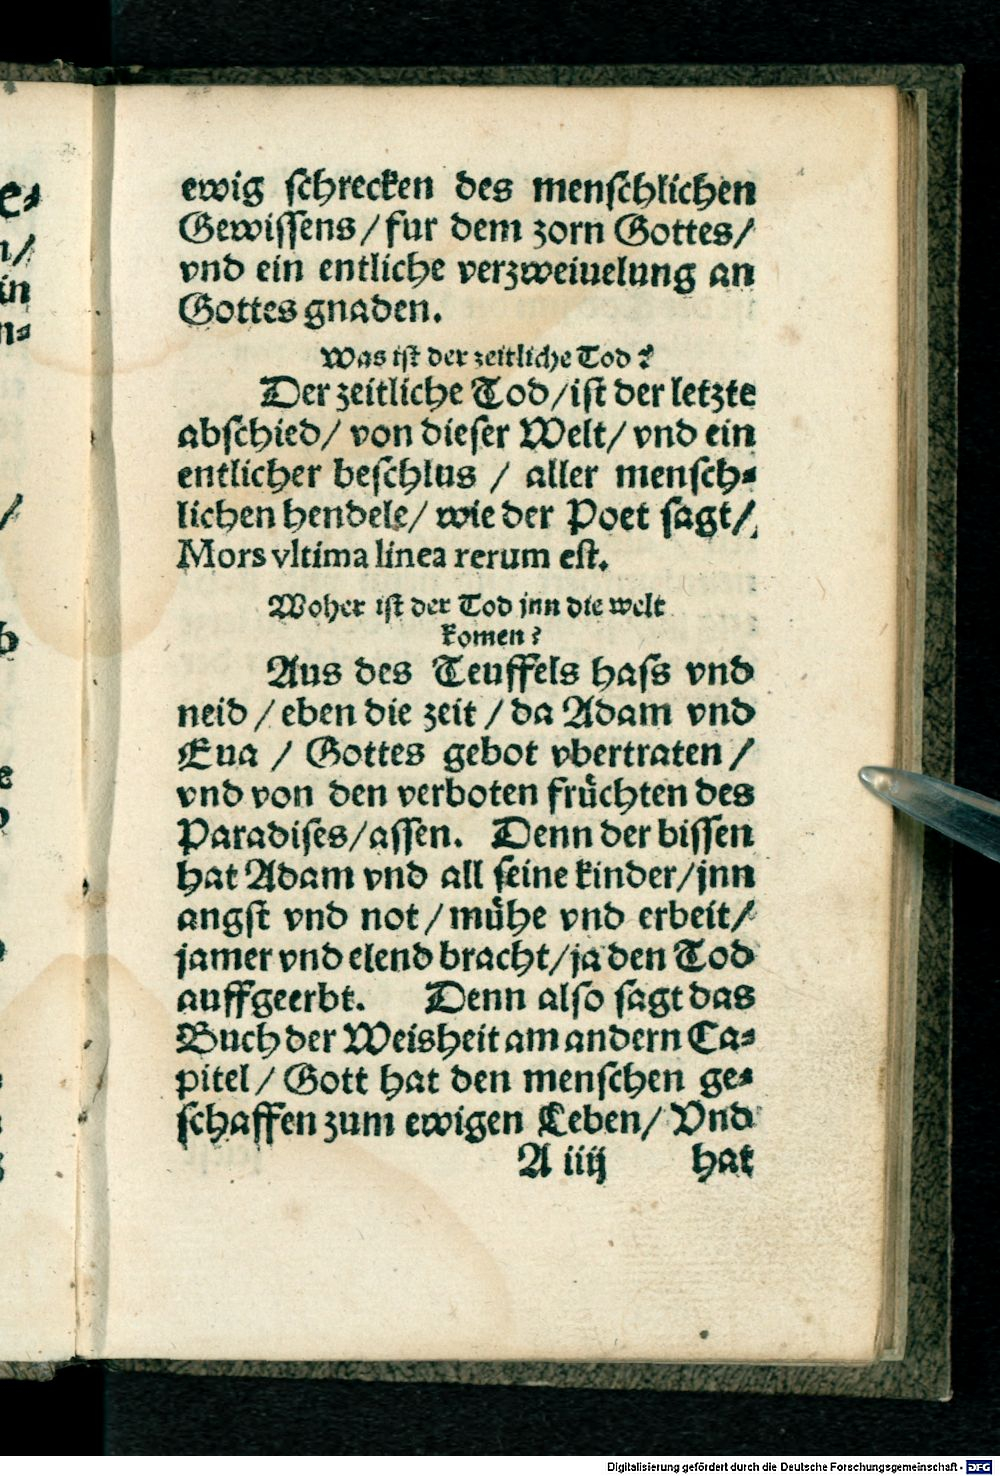 ewig schrecken des menschlichen
Gewissens / fur dem zorn Gottes /
vnd ein entliche verzweiuelung an
Gottes gnaden.
Was ist der zeitliche Tod?
Der zeitliche Tod / ist der letzte
abschied / von dieser Welt / vnd ein
entlicher beschlus / aller mensch-
lichen hendele / wie der Poet sagt /
Mors vltima linea rerum est.
Woher ist der Tod jnn die welt
komen?
Aus des Teuffels hass vnd
neid / eben die zeit / da Adam vnd
Eua / Gottes gebot vbertraten /
vnd von den verboten früchten des
Paradises / assen. Denn der bissen
hat Adam vnd all seine kinder / jnn
angst vnd not / mühe vnd erbeit /
jamer vnd elend bracht / ja den Tod
auffgeerbt. Denn also sagt das
Buch der Weisheit am andern Ca-
pitel / Gott hat den menschen ge-
schaffen zum ewigen Leben / Vnd
A iiij hat
Digitalisierung gefördert durch die Deutsche Forschungsgemeinschaft - DFG